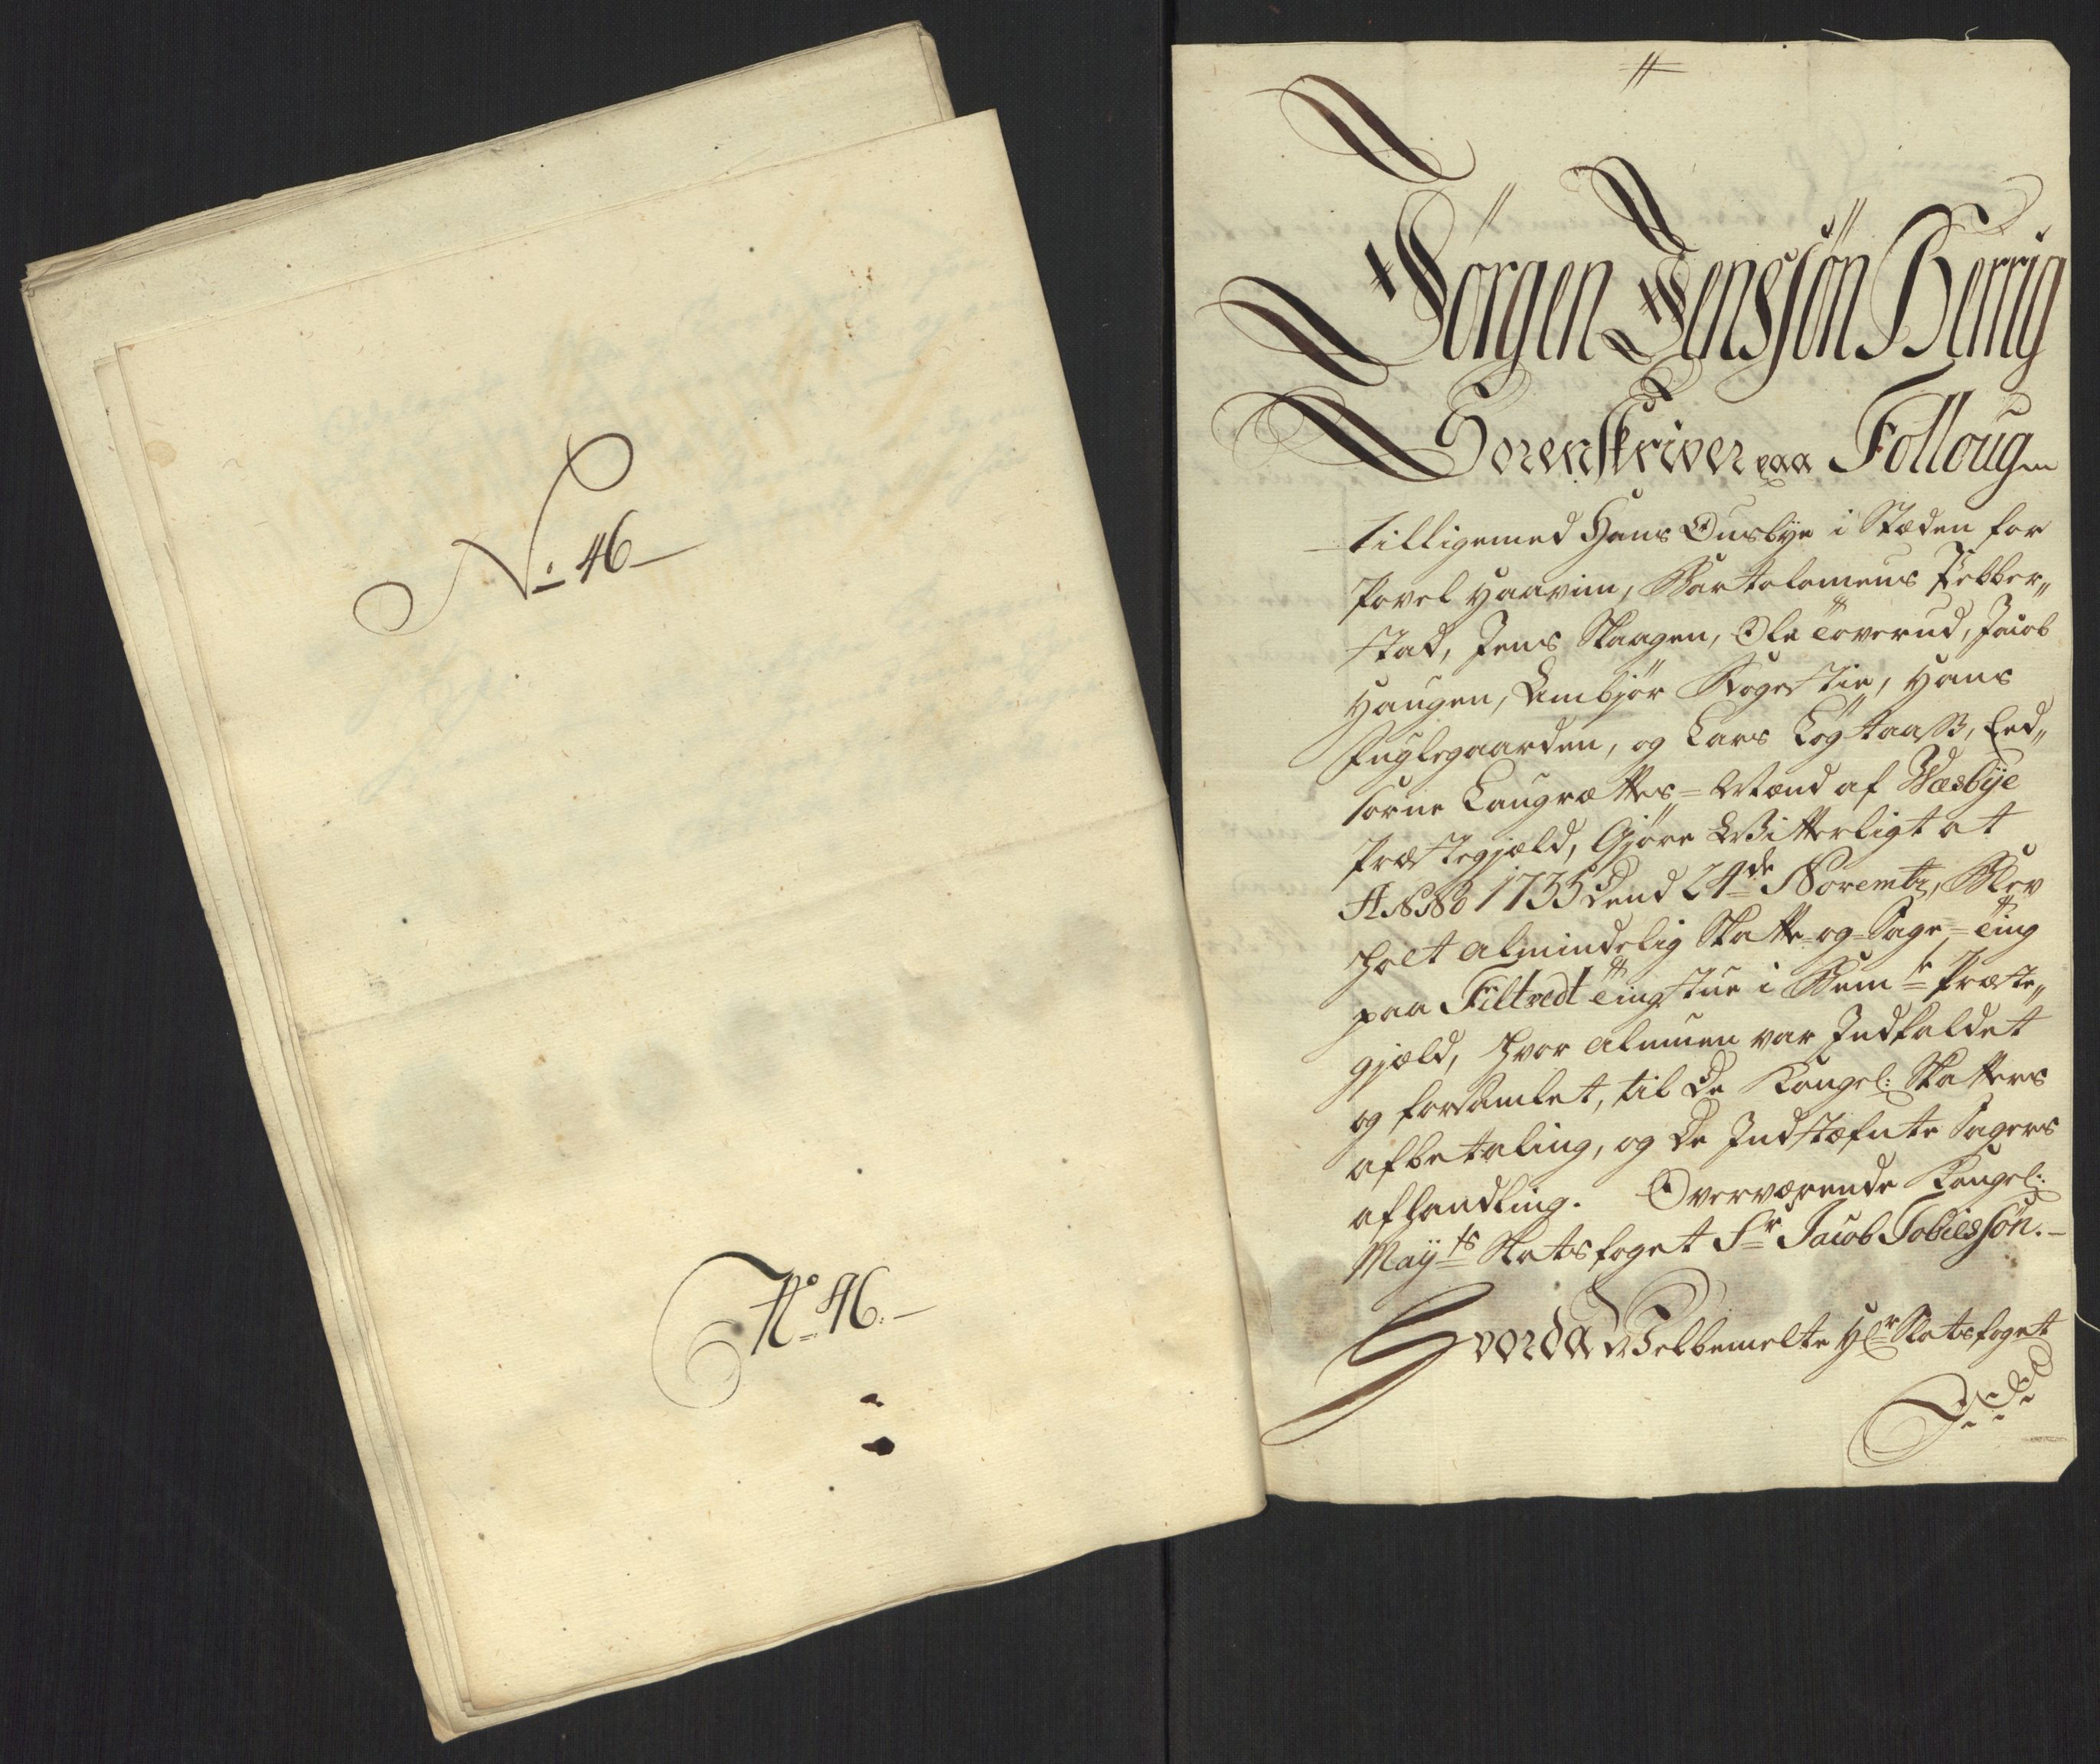 No 46
No 46.
Jörgen Jenssön Berrig
Sorenskriver paa Follougn
tilligemed Hans Ousbye i Stæden for
Povel Haavim, Bartolomeus Febber„
stad, Jens Skaagen, Ole Toverud, Jacob
Haugen, Embjör Kogestie, Hans
Fuglegaarden, og Lars Løgtaass, Eed„
sorne Laugrættes-Mænd af Wæsbye
Præstegjæld, Gjöre Witterligt at
ANNO 1735 Dend 24de Novembr, Blev
holt almindelig Skatte-og-Sage-Ting
paa Filtvedt Tingstue i Bemte Præste„
gjæld, hvor almuen var Indkaldet
og forsamlet, til De Kongel: Skatters
afbetaling, og De Indstæfnte Sagers
afhandling. Overværende Kongel:
Mayts Slotsfoget Sr Jacob Tobiessön.
Hvorda Velbemelte Hr Slotsfoget